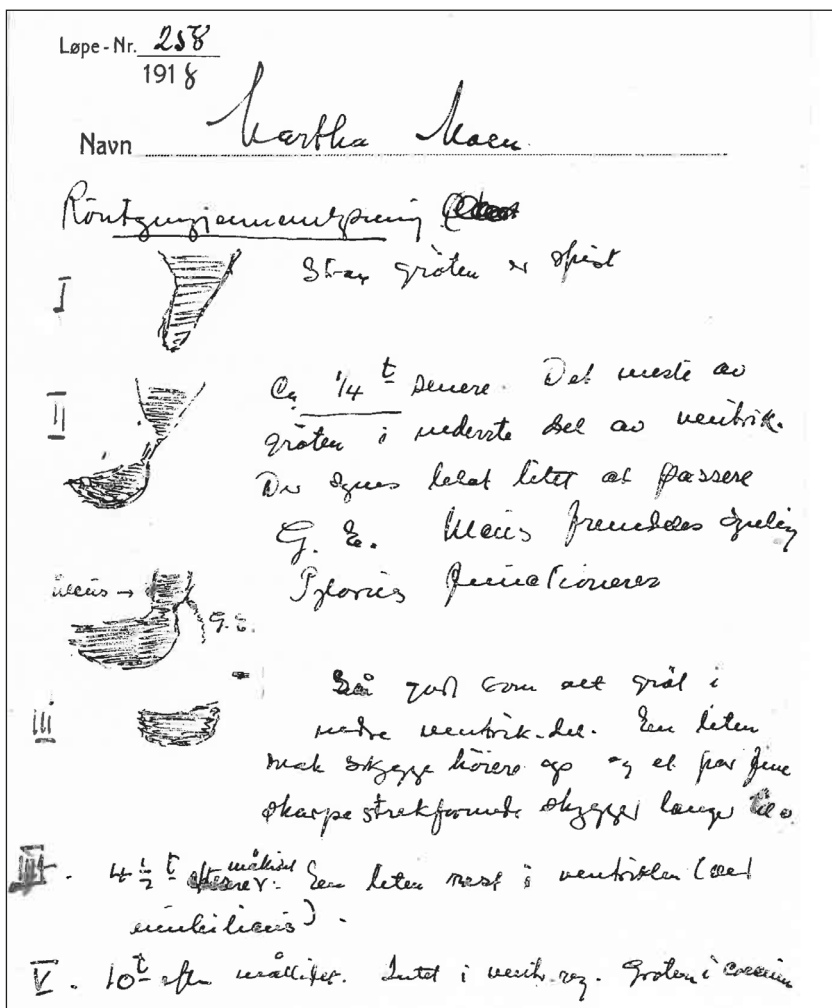 Løpe-Nr. 258
1918
Navn Martha Moen
Röntgengjennemlysning
I Strax gröten er spist
II Ca 1/4 t senere. Det meste av
gröten i nederste del av ventrik.
Der synes lidt at passere
G. E. Ulcus fremdeles synlig
Pylorus funktionerer
Ulcus → G.E.
III Så godt som alt gröt i
nedre ventrik-del. En liten
svak skygge höiere op og et par fine
skarpe strekformede skygger længer
4 1/2 t måltidet En liten rest i ventriklen (ved
umbilicus).
V. 10 t efter måltidet. Intet i ventr.reg. Gröten i coecum